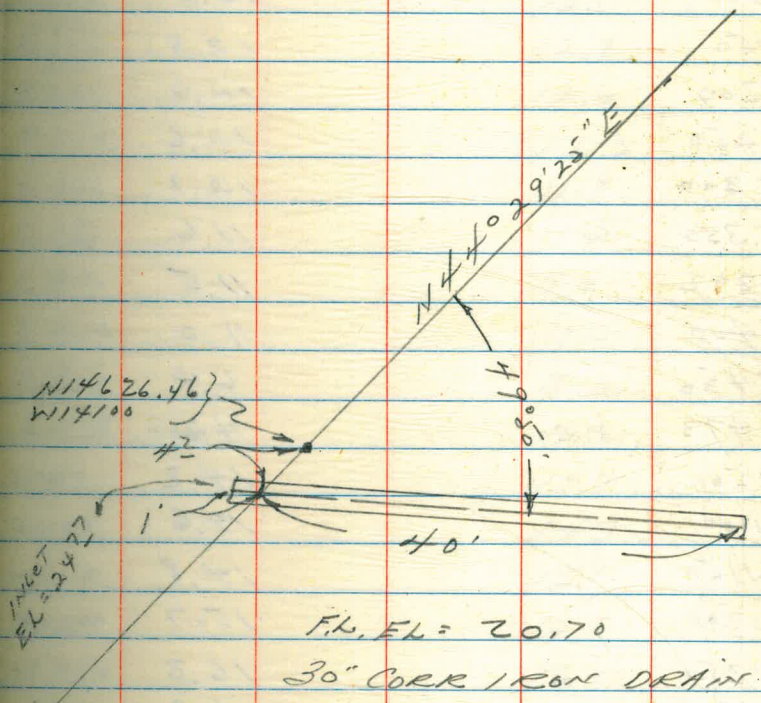 N44°29'25"E
N14626.46
W14100
4²
1'
40'
INLET
EL = 24.77
F.L. EL = 20.70
30" CORR IRON DRAIN